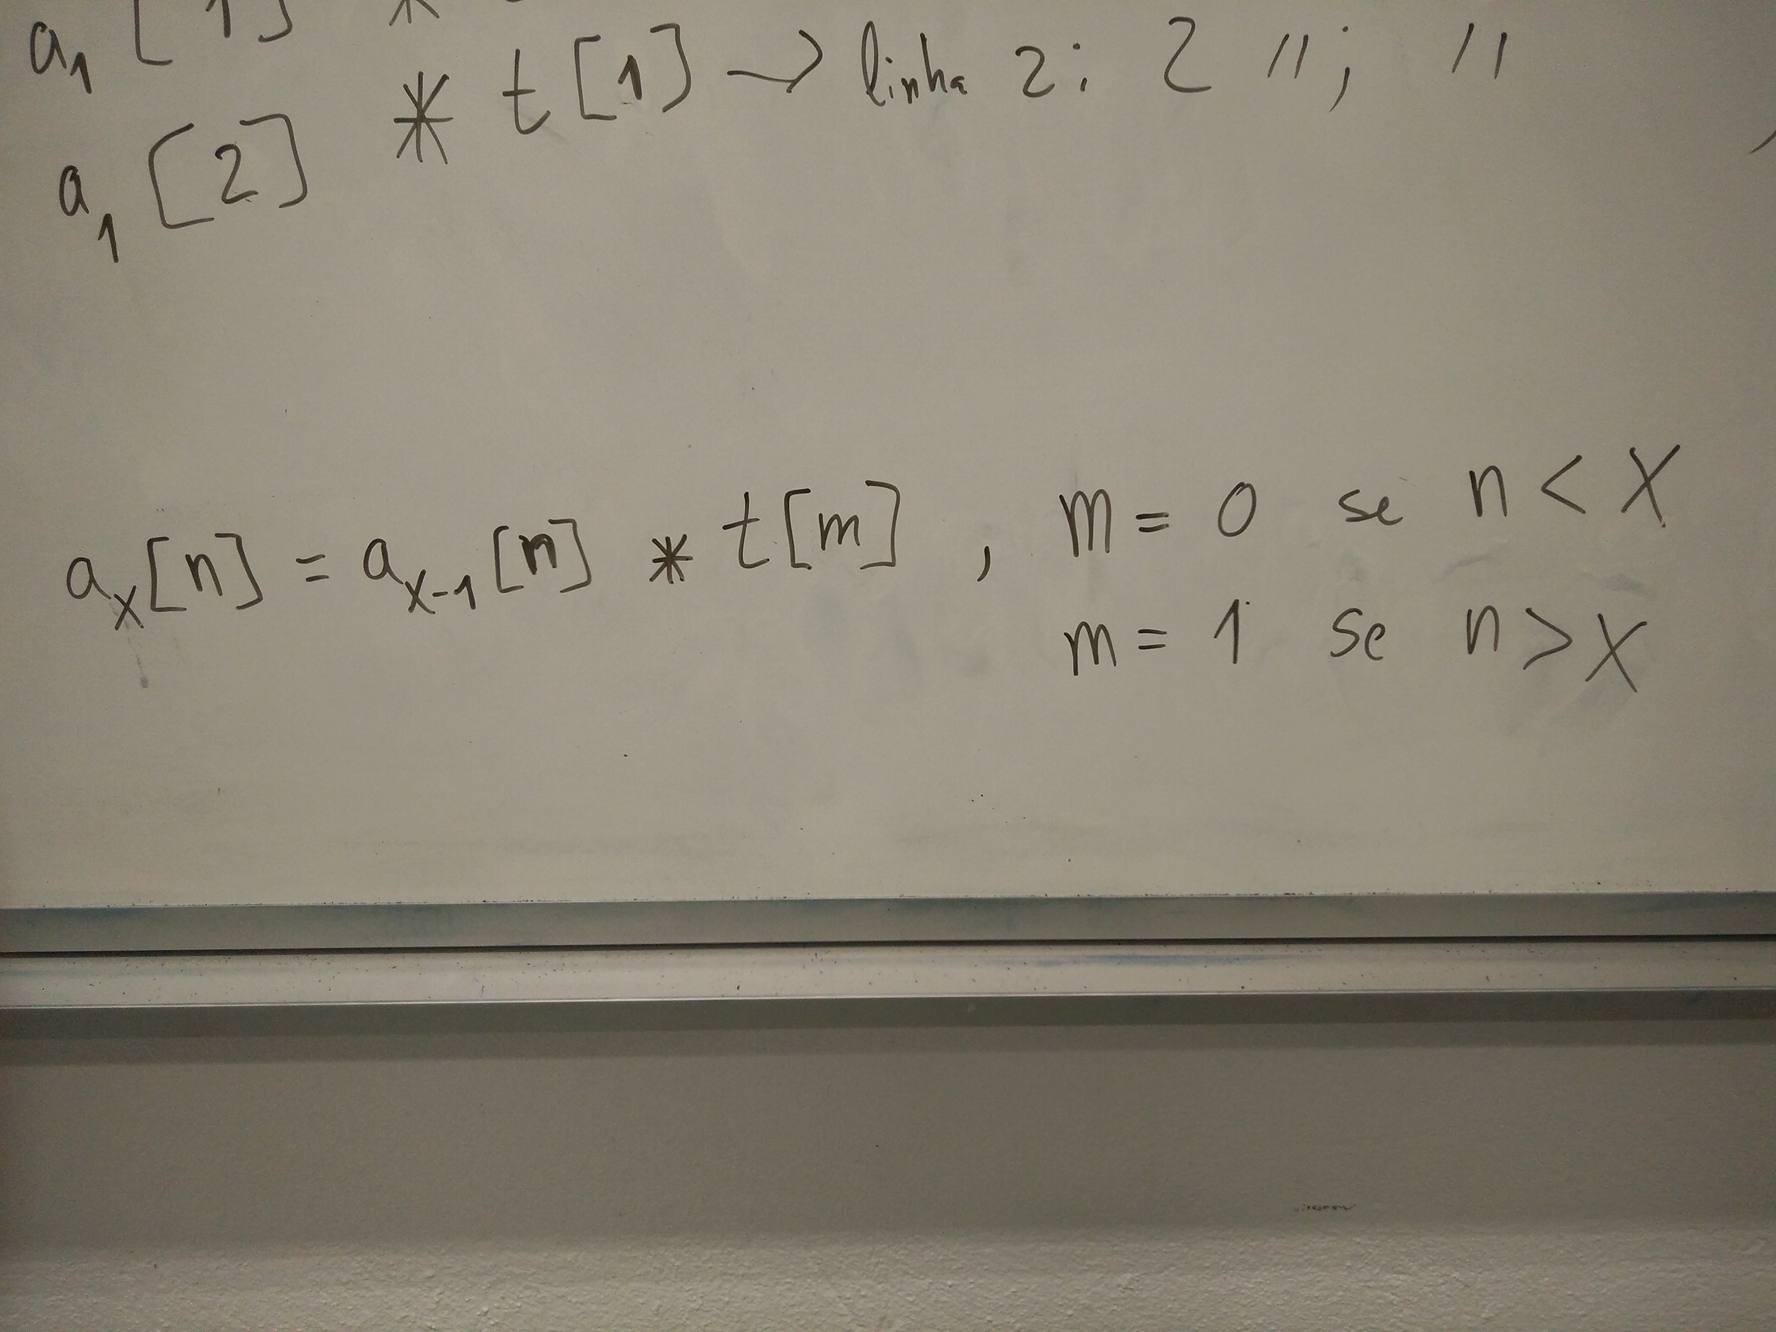 a₁ [1] *
a₁ [2] * t[1] → linha 2: 2 //; //
aₓ[n] = aₓ₋₁[n] * t[m] , m = 0 se n < X
m = 1 se n > X